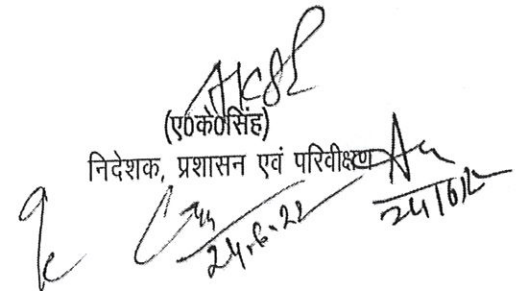 (ए0के0सिंह)
निदेशक, प्रशासन एवं परिवीक्षण
24.6.22
24/6/22